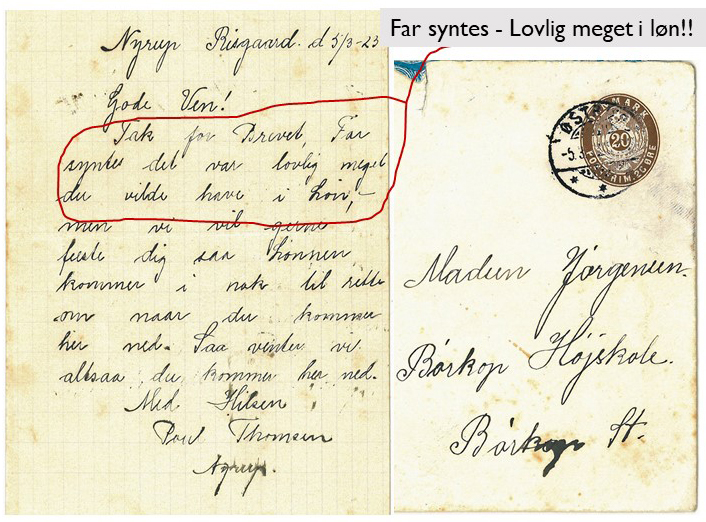 Far syntes - Lovlig meget i løn!!
Nyrup Risgaard. d 5/3-23
Gode Ven!
Tak for Brevet, Far
syntes det var lovlig meget
du vilde have i Løn, -
men vi vil gerne
fæste dig saa Lønnen
kommer i nok til rette
om naar du kommer
her ned. Saa venter vi
altsaa du kommer her ned.
Med Hilsen
Poul Thomsen
DANMARK
20
Madsen Jørgensen.
Børkop Højskole.
Børkop St.